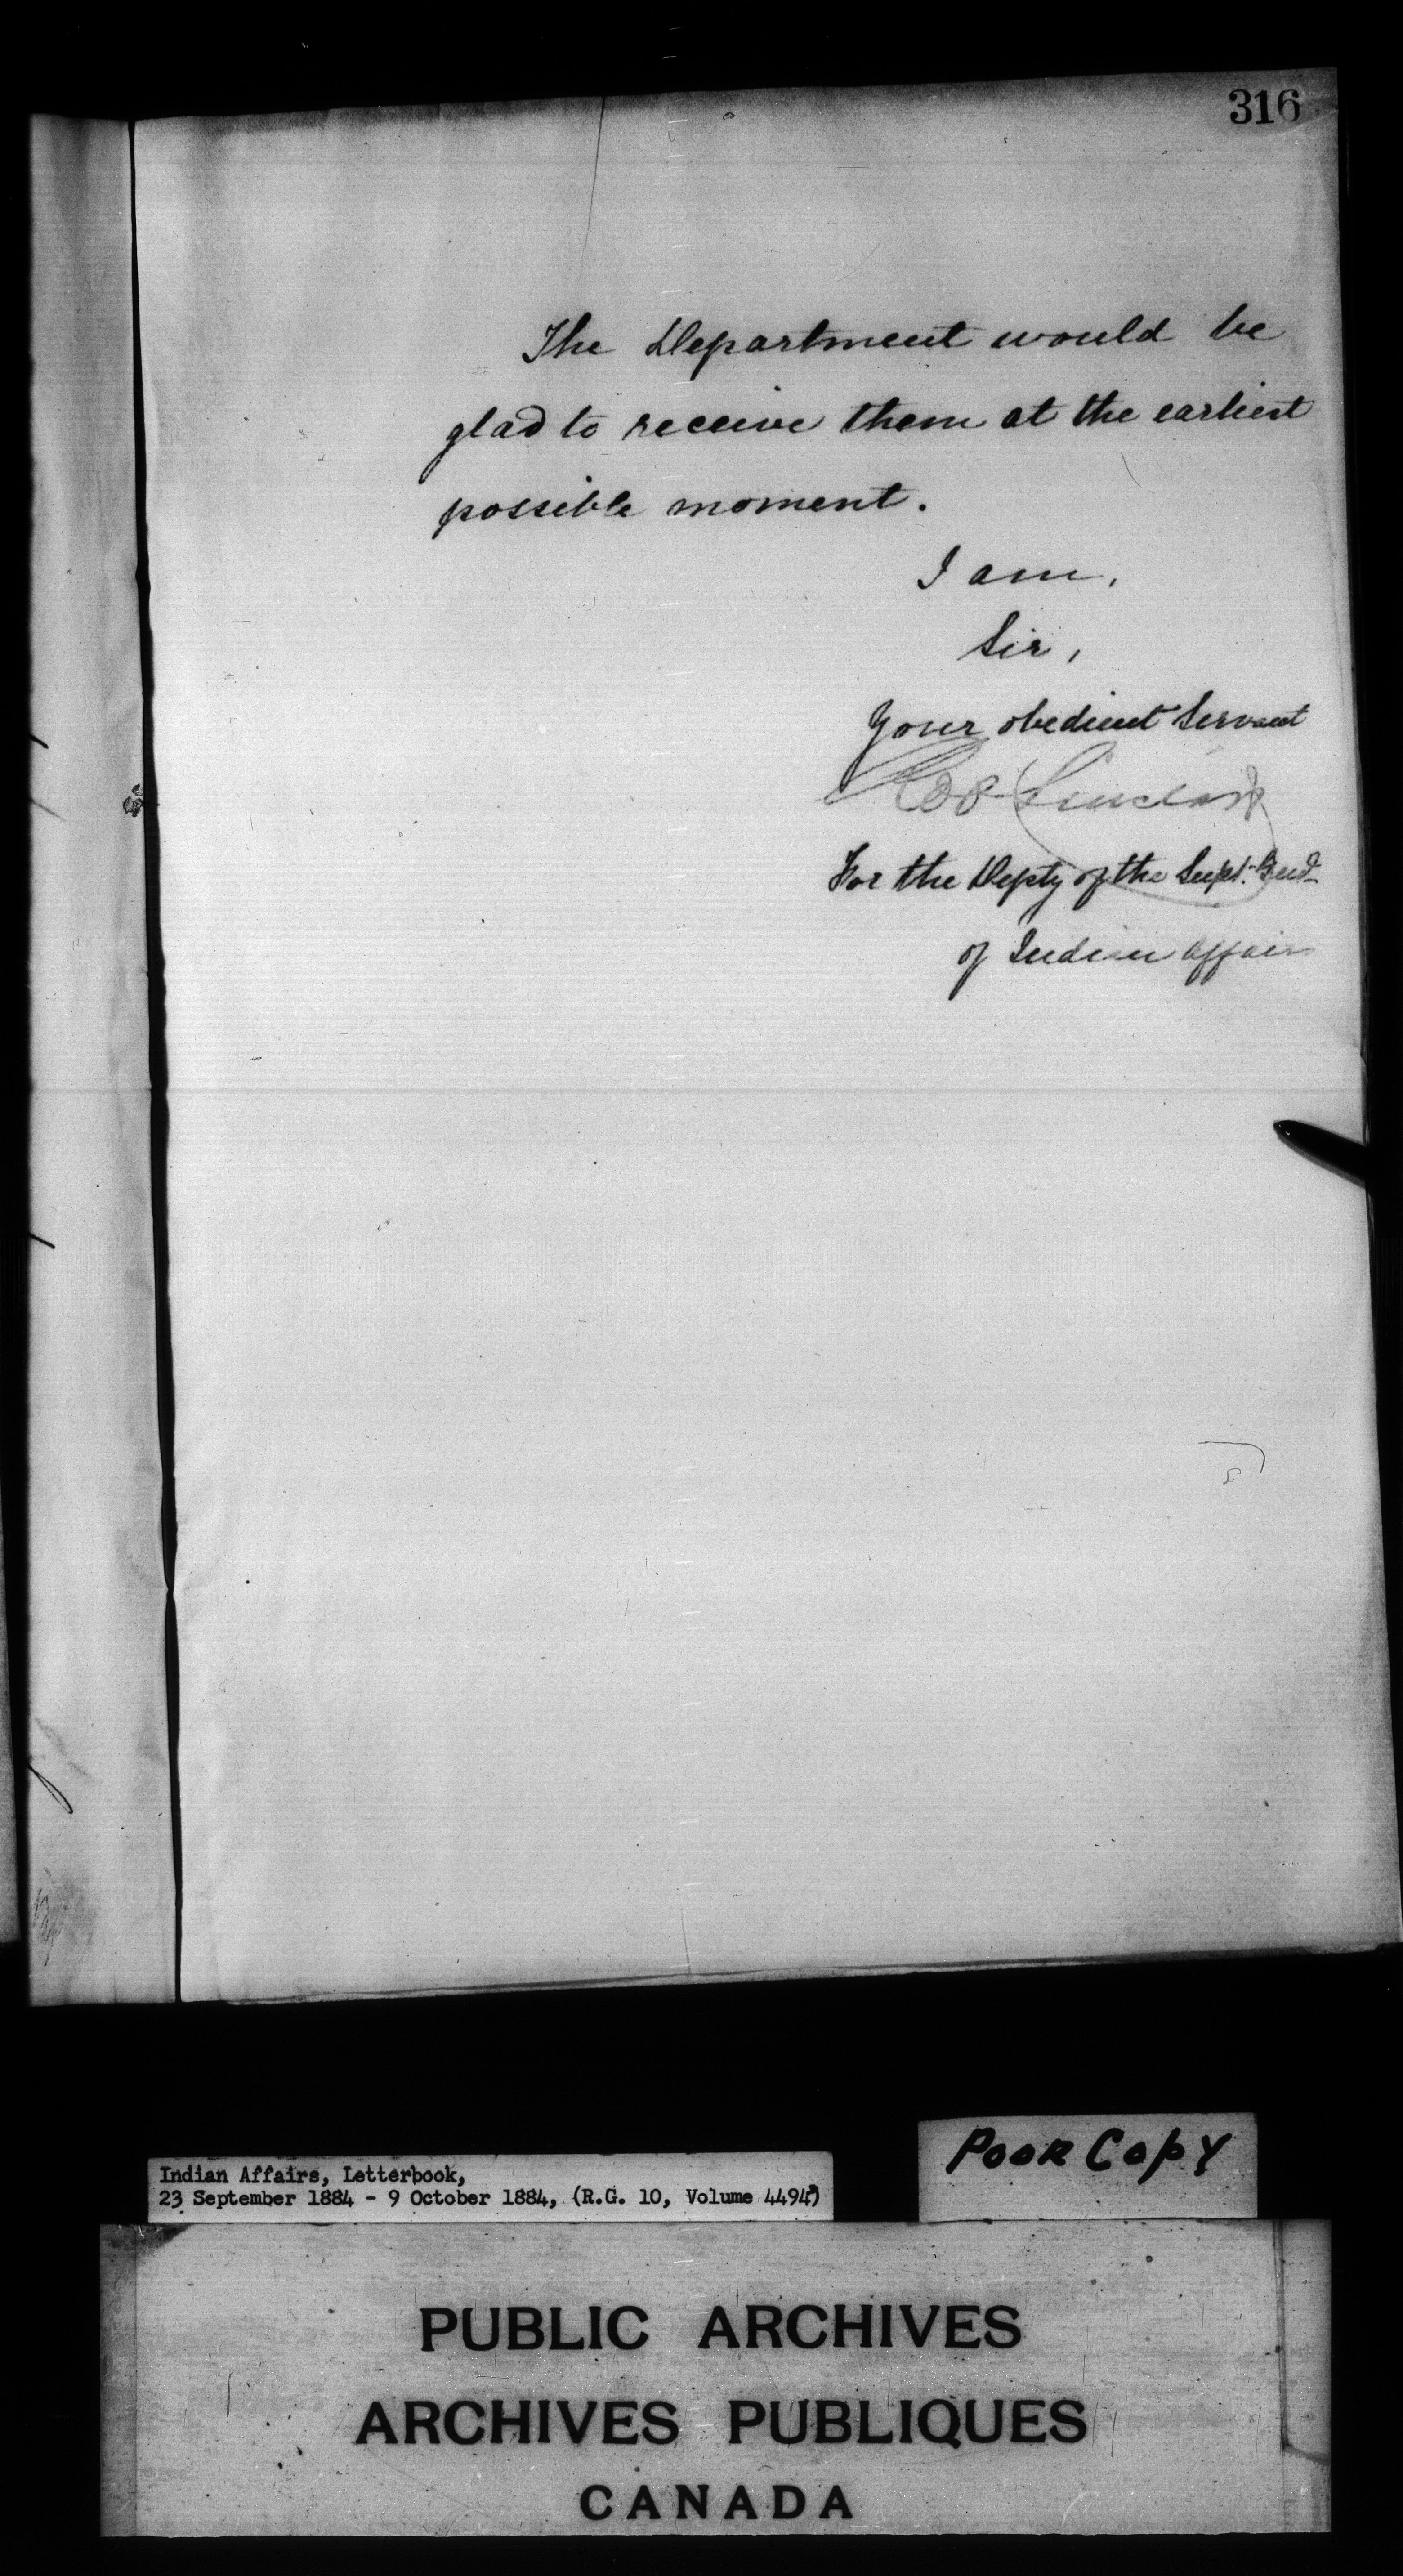 316
The Department would be
glad to receive them at the earliest
possible moment.
I am,
Sir,
Your obedient Servant
Sinclair
For the Depty of the Supt. Genl
of Indian Affairs
Poor Copy
Indian Affairs, Letterbook,
23 September 1884 - 9 October 1884, (R.G. 10, Volume 4494)
PUBLIC ARCHIVES
ARCHIVES PUBLIQUES
CANADA